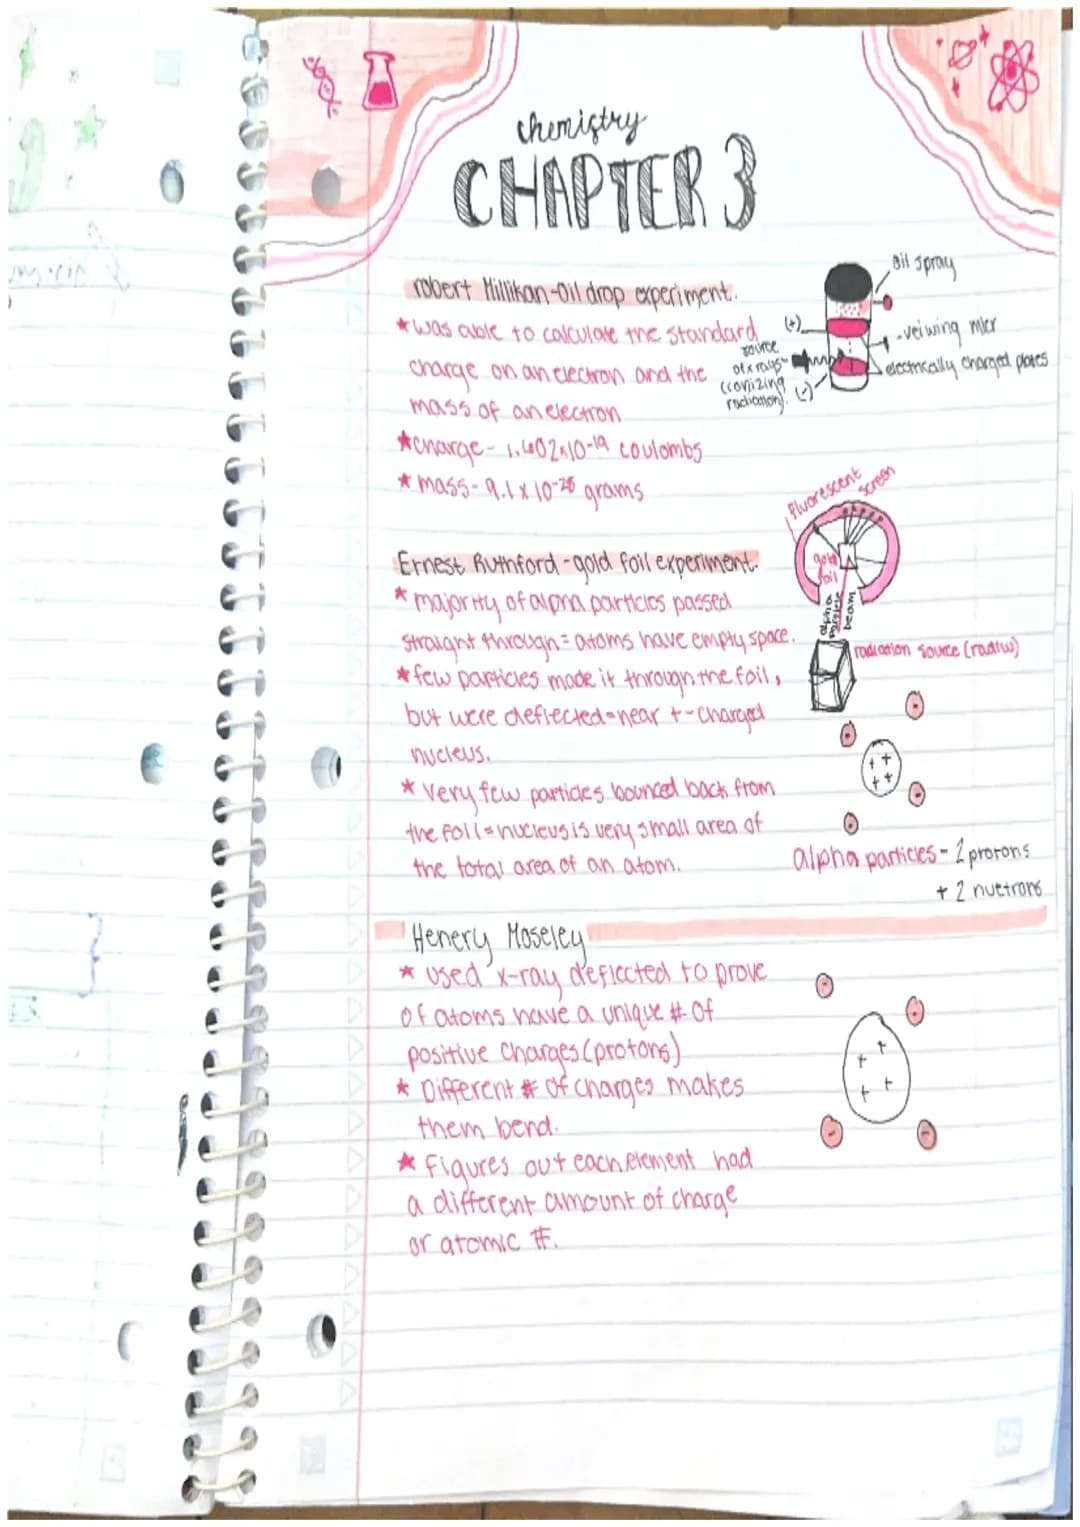 chemistry
CHAPTER 3
robert Millikan-Oil drop experiment.
* was able to calculate the standard
charge on an electron and the
mass of an electron
* charge - 1.602x10-19 coulombs
* mass - 9.1 x 10-28 grams
oil spray
(+)
-veiwing micr
source
of x rays
(ionizing
radiation).
(-)
electrically charged plates
Ernest Ruthford - gold foil experiment.
* majority of alpha particles passed
straight through = atoms have empty space.
* few particles made it through the foil,
but were deflected = near + - charged
nucleus.
* very few particles bounced back from
the foil = nucleus is very small area of
the total area of an atom.
fluorescent screen
gold
foil
alpha
particle
beam
radiation source (radiw)
+ +
+ +
alpha particles - 2 protons
+ 2 nuetrons
Henery Moseley
* used x-ray deflected to prove
of atoms have a unique # of
positive charges (protons)
* Different # of charges makes
them bend.
* Figures out each element had
a different amount of charge
or atomic #.
+ +
+ +